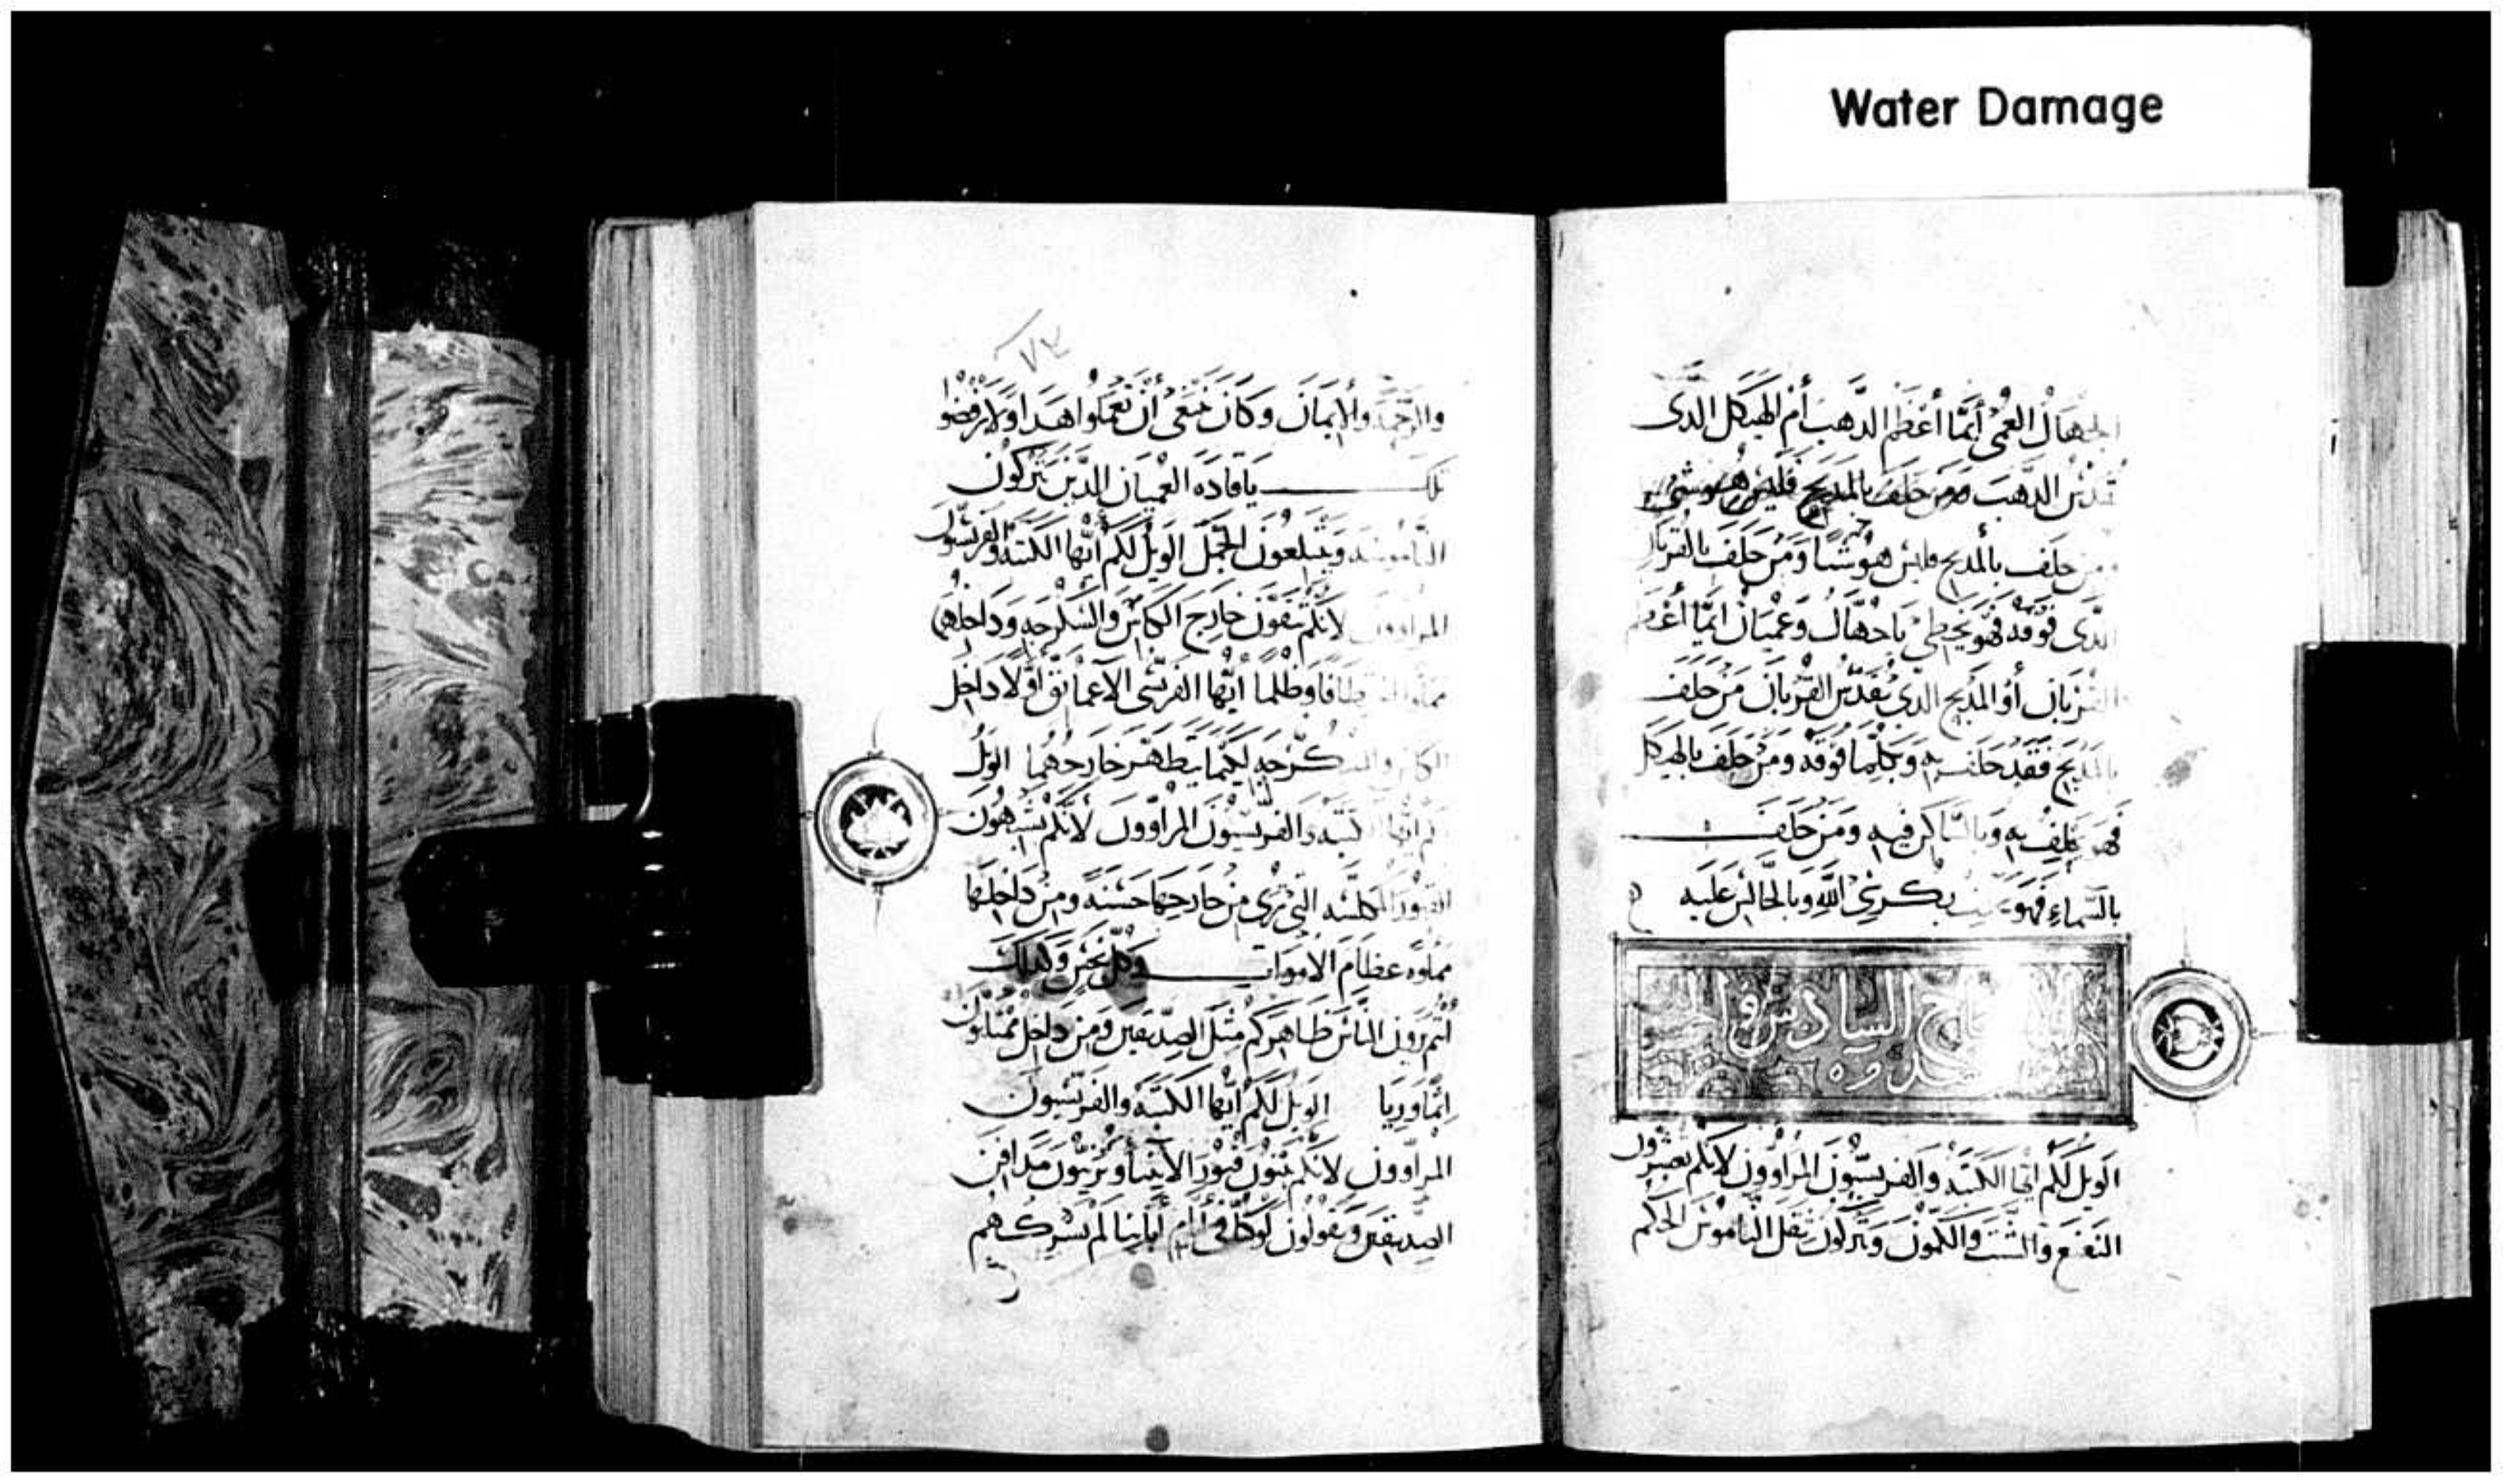 Water Damage
الجهال العمى أيما أعظم الدهب أم الهيكل الدى
يقدس الدهب ومن حلف بالمدبح فليس هو شى
ومن حلف بالمدبح فليس هو شيا ومن حلف بالقربان
الدى فوقه فهو يخطى ياجهال وعميان ايما أعظم
القربان أو المدبح الدى يقدس القربان من حلف
بالمدبح فقد حلف به وبكلما فوقه ومن حلف بالهيكل
فهو يحلف به وبالساكن فيه ومن حلف
بالسماء فهو بكرسى الله وبالجالس عليه
السادس و
الويل لكم ايها الكتبه والفريسيون المراوون لانكم تعشرون
النعنع والشبت والكمون وتتركون ثقل الناموس الحكم
٧٣
والرحمه والايمان وكان ينبغى أن تعملوا هدا ولا ترفضوا
تلك ياقاده العميان الدين يتركون
الناموسه ويتبلعون الجمل الويل لكم أيها الكتبه والفريسيون
المراوون لانكم تنقون خارج الكاس والسكرجه وداخلهما
مملوا اختطافا وظلما أيها الفريسى الاعما نق اولا داخل
الكاس والسكرجه ليكما يتطهر خارجهما الويل
لكم ايها الكتبه والفريسيون المراوون لانكم تشبهون
القبور المكلسه التى ترى من خارجها حسنه ومن داخلها
مملوه عظام الاموات وكل نجس وكدلك
أنتم ترون الناس ظاهركم مثل الصديقين ومن داخل ممتلون
اثما وريا الويل لكم ايها الكتبه والفريسيون
المراوون لانكم تبنون قبور الانبيا وتزينون مدافن
الصديقين وتقولون لو كنا فى أيام أباينا لم نشركهم